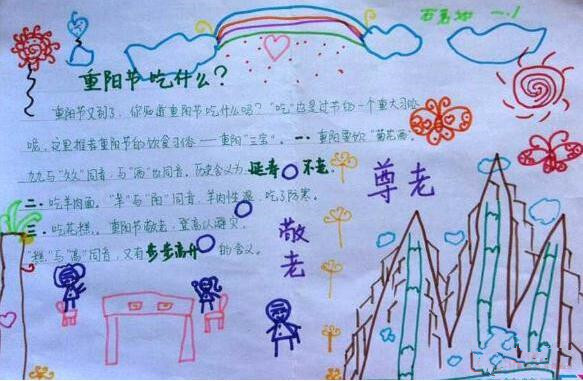 一.1
重阳节吃什么?
重阳节又到了，你知道重阳节吃什么吗？"吃"也是过节的一个重大习俗
呢，这里推荐重阳节的饮食习俗——重阳"三宝"。一.重阳要饮"菊花酒"，
九九与"久久"同音，与"酒"也同音，历史含义为延寿不老。
二.吃羊肉面。"羊"与"阳"同音，羊肉性温，吃了防寒。
三.吃花糕。重阳节敬老，登高以避灾，
"糕"与"高"同音，又有步步高升的含义。
尊老
敬老